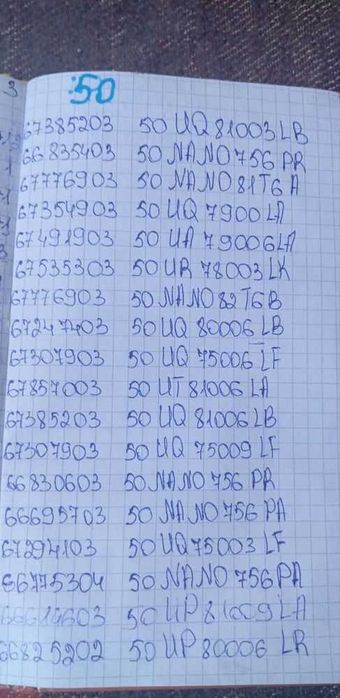 :50
67385203 50 UQ 81003 LB
66835403 50 NANO 756 PR
67776903 50 NANO 81T6 A
67354903 50 UQ 7900 LA
67491903 50 UA 79006 LA
67535303 50 UR 78003 LK
67776903 50 NANO 82T6B
67247403 50 UQ 80006 LB
67307903 50 UQ 75006 LF
67857003 50 UT 81006 LA
67385203 50 UQ 81006 LB
67307903 50 UQ 75009 LF
66830603 50 NANO 756 PR
66695703 50 NANO 756 PA
67294103 50 UQ75003 LF
66775304 50 NANO 756 PA
66614603 50 UP 81009 LA
66825202 50 UP 80006 LR